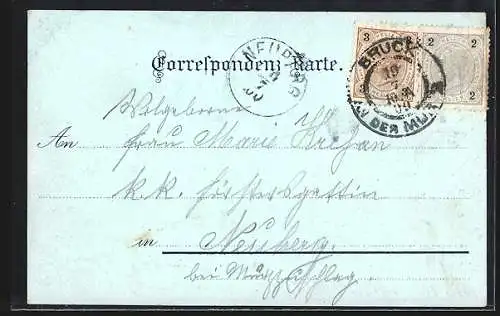 Correspondenz-Karte.
NEUBERG
3 3
2 2
BRUCK
AN DER MUR
Wolgeborne
An Frau Marie
k.k. Försters gattin
in Neuberg.
bei Mürzzuschlag